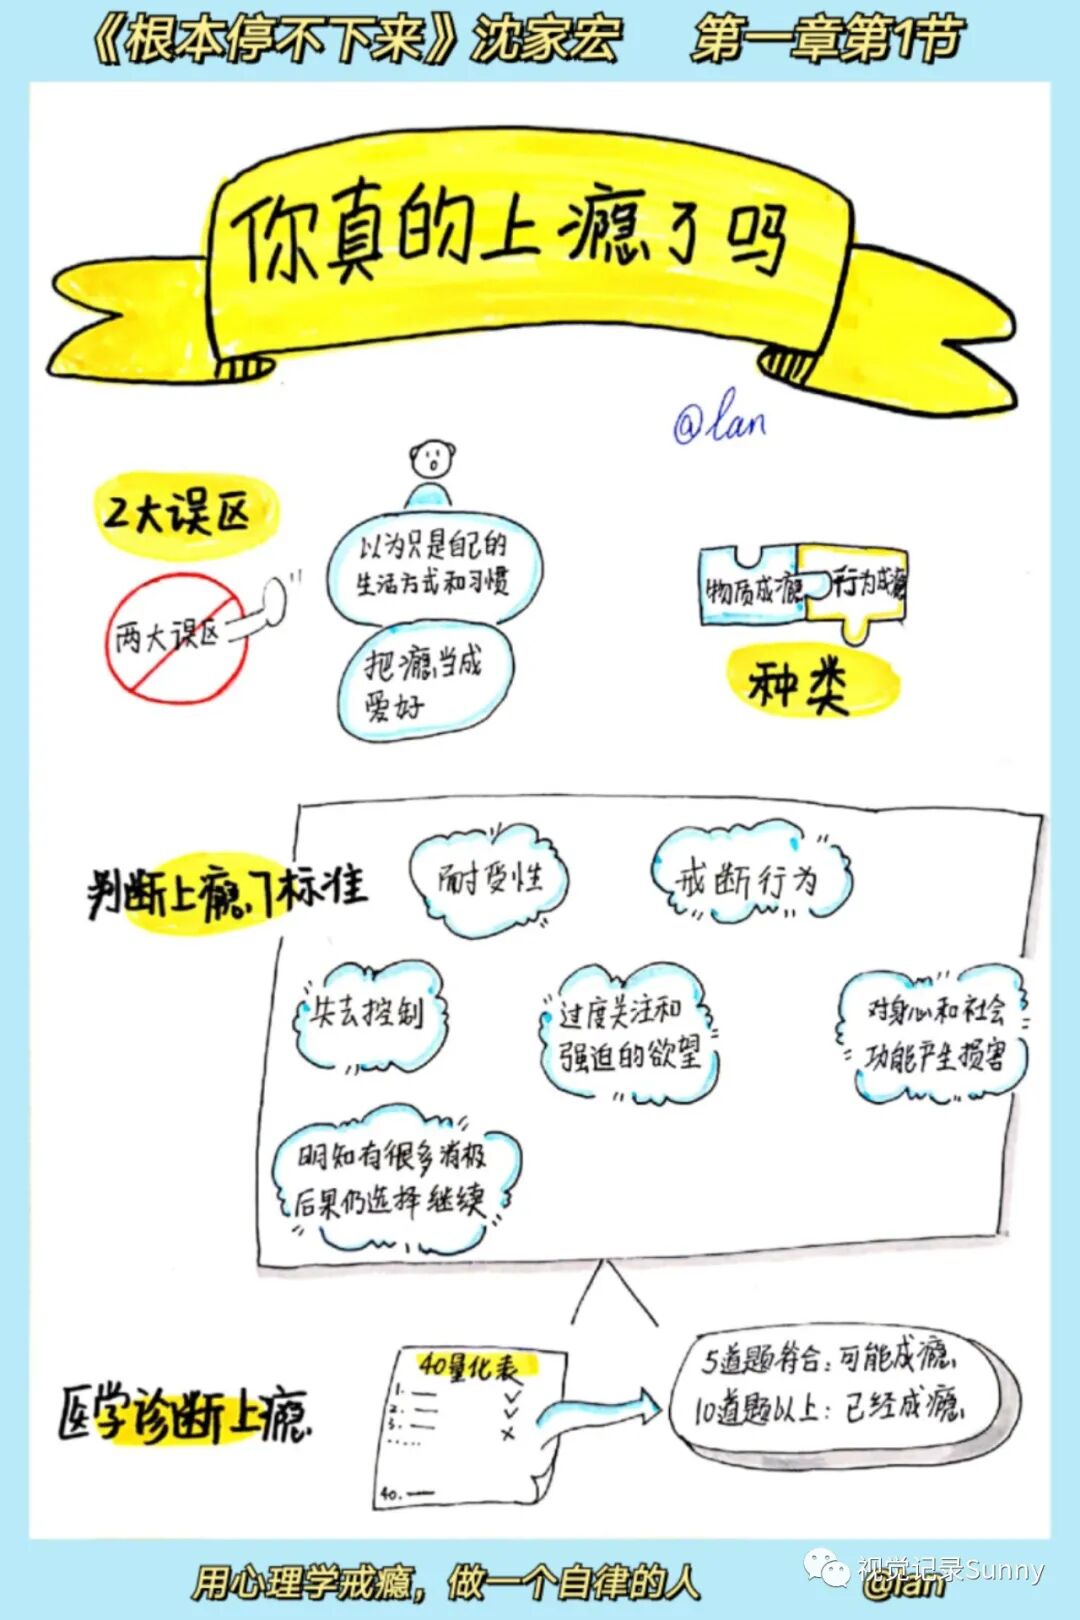 《根本停不下来》沈家宏 第一章第1节
你真的上瘾了吗
@lan
2大误区
两大误区
以为只是自己的
生活方式和习惯
把瘾当成
爱好
物质成瘾
行为成瘾
种类
判断上瘾7标准
耐受性
戒断行为
失去控制
过度关注和
强迫的欲望
对身心和社会
功能产生损害
明知有很多消极
后果仍选择继续
医学诊断上瘾
40量化表
1.
2.
3.
.....
40.
5道题符合:可能成瘾
10道题以上:已经成瘾
用心理学戒瘾，做一个自律的人
@lan
视觉记录Sunny